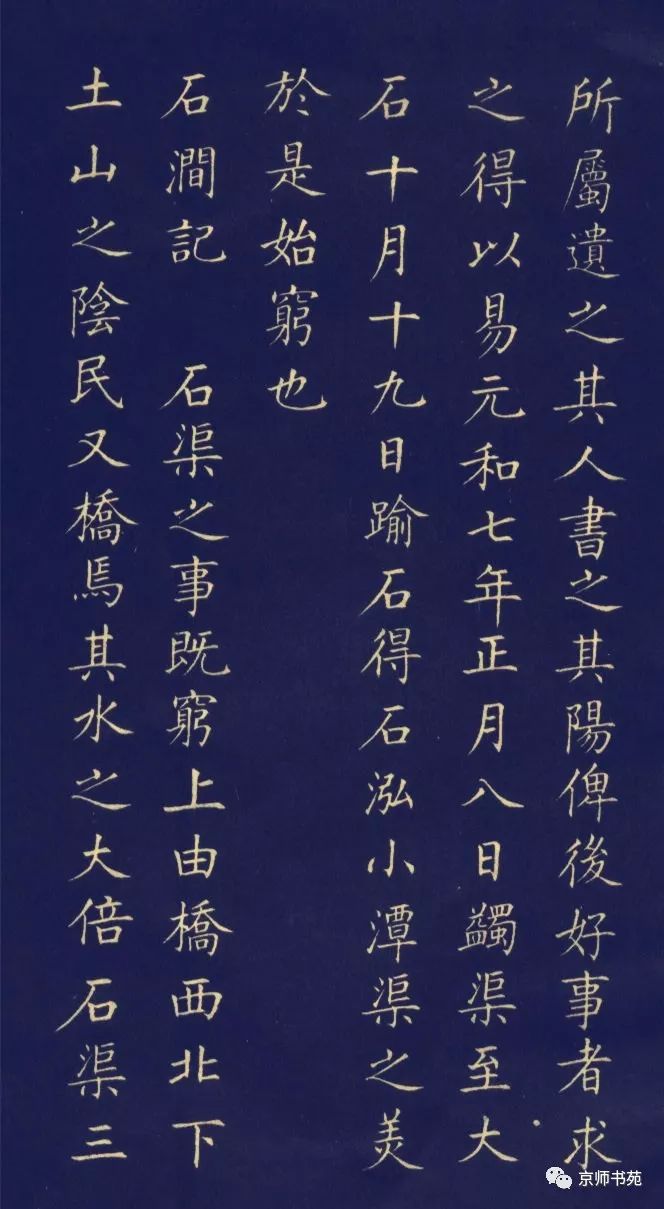 所屬遺之其人書之其陽俾後好事者求
之得以易元和七年正月八日蠲渠至大
石十月十九日踰石得石泓小潭渠之美
於是始窮也
石澗記　石渠之事既窮上由橋西北下
土山之陰民又橋焉其水之大倍石渠三
京师书苑